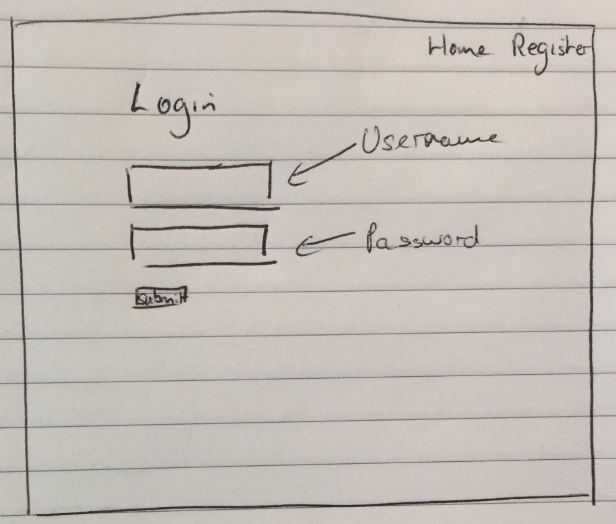 Home Register
Login
Username
Password
Submit